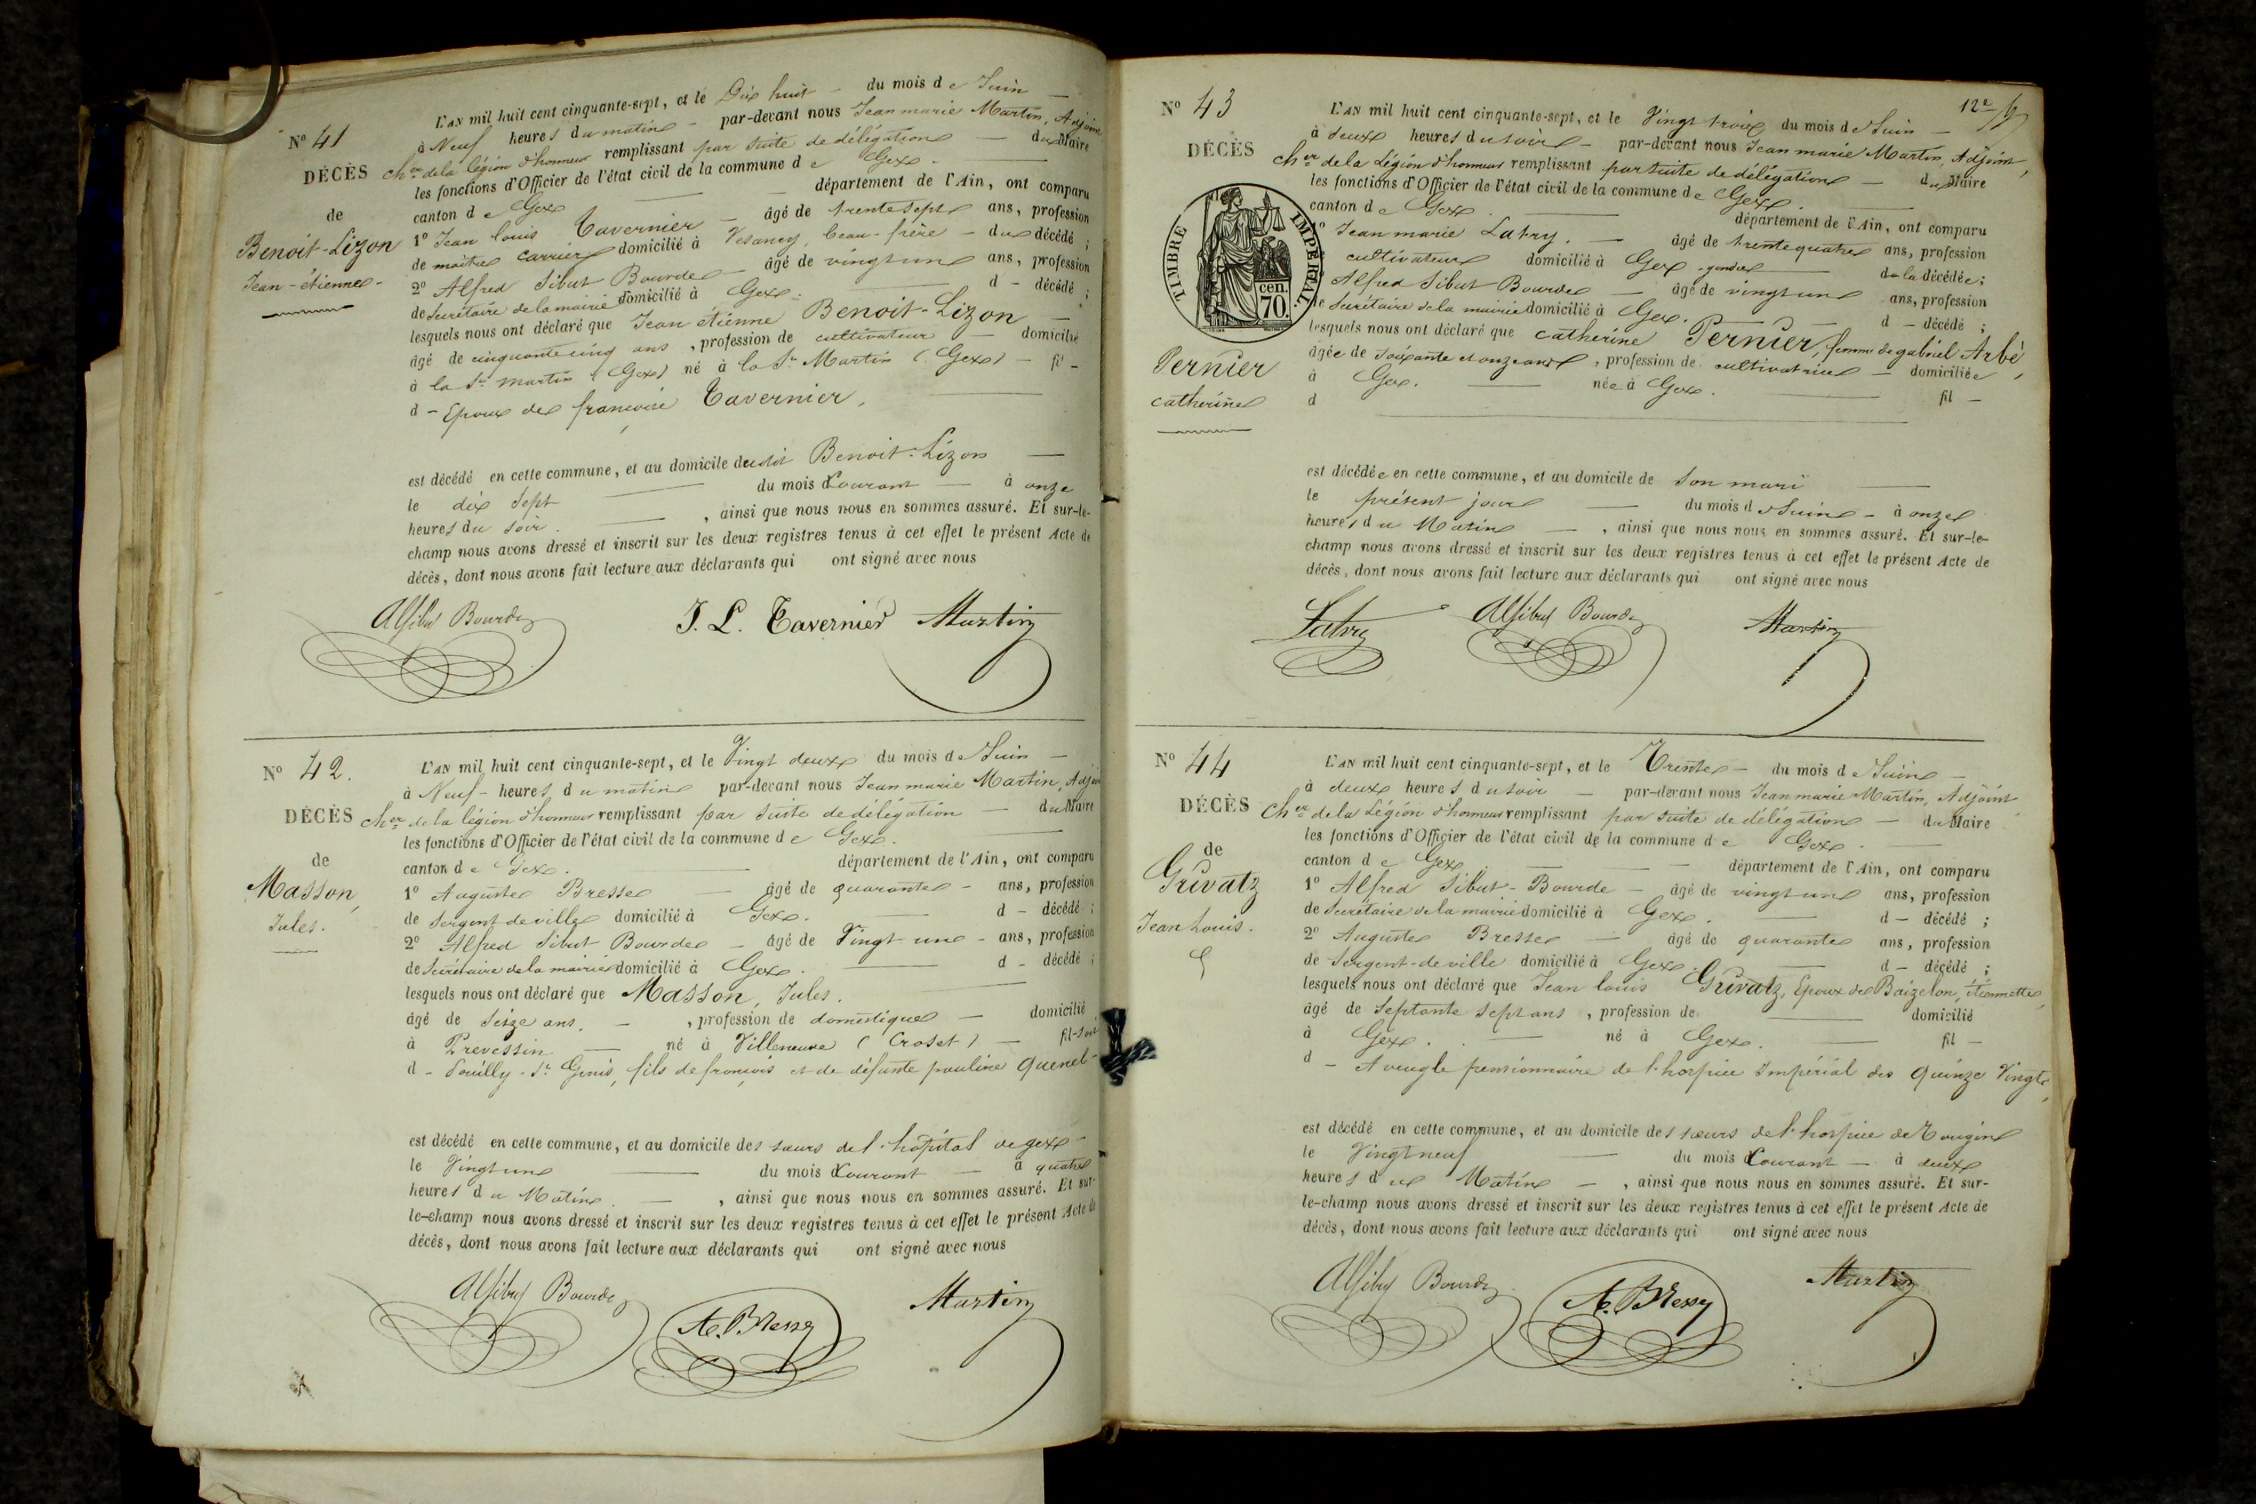 N° 41
DÉCÈS
de
Benoit-Lizon
Jean-étienne
L'AN mil huit cent cinquante-sept, et le Dix huit du mois de Juin
à Neuf heures du matin par-devant nous Jean marie Martin, Adjoint
cher de la légion d'honneur remplissant par suite de délégation du Maire
les fonctions d'Officier de l'état civil de la commune de Gex
canton de Gex département de l'Ain, ont comparu
1° Jean louis Tavernier âgé de trente sept ans, profession
de maître carrier domicilié à Vesancy, beau-frère du décédé ;
2° Alfred Sibut Bourde âgé de vingt un ans, profession
de Secrétaire de la mairie domicilié à Gex d décédé ;
lesquels nous ont déclaré que Jean étienne Benoit-Lizon
âgé de cinquante cinq ans, profession de cultivateur domicilié
à la St martin (Gex) né à la St Martin (Gex) fil
d Epoux de françoise Tavernier,
est décédé en cette commune, et au domicile dudit Benoit-Lizon
le dix sept du mois Courant à onze
heures du soir, ainsi que nous nous en sommes assuré. Et sur-le-
champ nous avons dressé et inscrit sur les deux registres tenus à cet effet le présent Acte de
décès, dont nous avons fait lecture aux déclarants qui ont signé avec nous
Alf Sibut Bourde J. L. Tavernier Martin
N° 42.
DÉCÈS
de
Masson,
Jules.
L'AN mil huit cent cinquante-sept, et le Vingt deux du mois de Juin
à Neuf heures du matin par-devant nous Jean marie Martin, Adjoint
cher de la légion d'honneur remplissant par suite de délégation du Maire
les fonctions d'Officier de l'état civil de la commune de Gex.
canton de Gex. département de l'Ain, ont comparu
1° Auguste Bresse âgé de quarante ans, profession
de Sergent de ville domicilié à Gex. d décédé ;
2° Alfred Sibut Bourde âgé de Vingt un ans, profession
de Secrétaire de la mairie domicilié à Gex. d décédé ;
lesquels nous ont déclaré que Masson, Jules.
âgé de Seize ans, profession de domestique domicilié
à Prevessin né à Villeneuve (Croset) fil
d Pouilly-St Genis, fils de françois et de défunte pauline Quenet
est décédé en cette commune, et au domicile des sœurs de l'hôpital de gex
le Vingt un du mois Courant à quatre
heures du Matin, ainsi que nous nous en sommes assuré. Et sur-
le-champ nous avons dressé et inscrit sur les deux registres tenus à cet effet le présent Acte de
décès, dont nous avons fait lecture aux déclarants qui ont signé avec nous
Alf Sibut Bourde A. Bressy Martin
12e
N° 43
DÉCÈS
TIMBRE IMPÉRIAL.
70 cen.
Pernier
catherine
L'AN mil huit cent cinquante-sept, et le Vingt trois du mois de Juin
à deux heures du soir par-devant nous Jean marie Martin, Adjoint,
cher de la Légion d'honneur remplissant par suite de délégation du Maire
les fonctions d'Officier de l'état civil de la commune de Gex.
canton de Gex. département de l'Ain, ont comparu
1° Jean marie Latry. âgé de trente quatre ans, profession
cultivateur domicilié à Gex, gendre de la décédée ;
Alfred Sibut Bourde âgé de vingt un ans, profession
de Secrétaire de la mairie domicilié à Gex. d décédé ;
lesquels nous ont déclaré que catherine Pernier, femme de gabriel Arbè,
âgée de soixante et onze ans, profession de cultivatrice domiciliée
à Gex. née à Gex. fil
d
est décédée en cette commune, et au domicile de son mari
le présent jour du mois de Juin à onze
heures du Matin, ainsi que nous nous en sommes assuré. Et sur-le-
champ nous avons dressé et inscrit sur les deux registres tenus à cet effet le présent Acte de
décès, dont nous avons fait lecture aux déclarants qui ont signé avec nous
Latry Alf Sibut Bourde Martin
N° 44
DÉCÈS
de
Grivatz
Jean Louis.
L'AN mil huit cent cinquante-sept, et le Trente du mois de Juin
à deux heures du soir par-devant nous Jean marie Martin, Adjoint
cher de la Légion d'honneur remplissant par suite de délégation du Maire
les fonctions d'Officier de l'état civil de la commune de Gex.
canton de Gex. département de l'Ain, ont comparu
1° Alfred Sibut-Bourde âgé de vingt un ans, profession
de Secrétaire de la mairie domicilié à Gex. d décédé ;
2° Auguste Bresse âgé de quarante ans, profession
de Sergent-de ville domicilié à Gex. d décédé ;
lesquels nous ont déclaré que Jean louis Grivatz, Epoux de Baizelon, étiennette,
âgé de Septante Sept ans, profession de domicilié
à Gex. né à Gex. fil
d Aveugle pensionnaire de l'hospice Impérial des Quinze Vingts,
est décédé en cette commune, et au domicile des sœurs de l'hospice de Tougin
le Vingt neuf du mois Courant à deux
heures du Matin, ainsi que nous nous en sommes assuré. Et sur-
le-champ nous avons dressé et inscrit sur les deux registres tenus à cet effet le présent Acte de
décès, dont nous avons fait lecture aux déclarants qui ont signé avec nous
Alf Sibut Bourde A. Bressy Martin